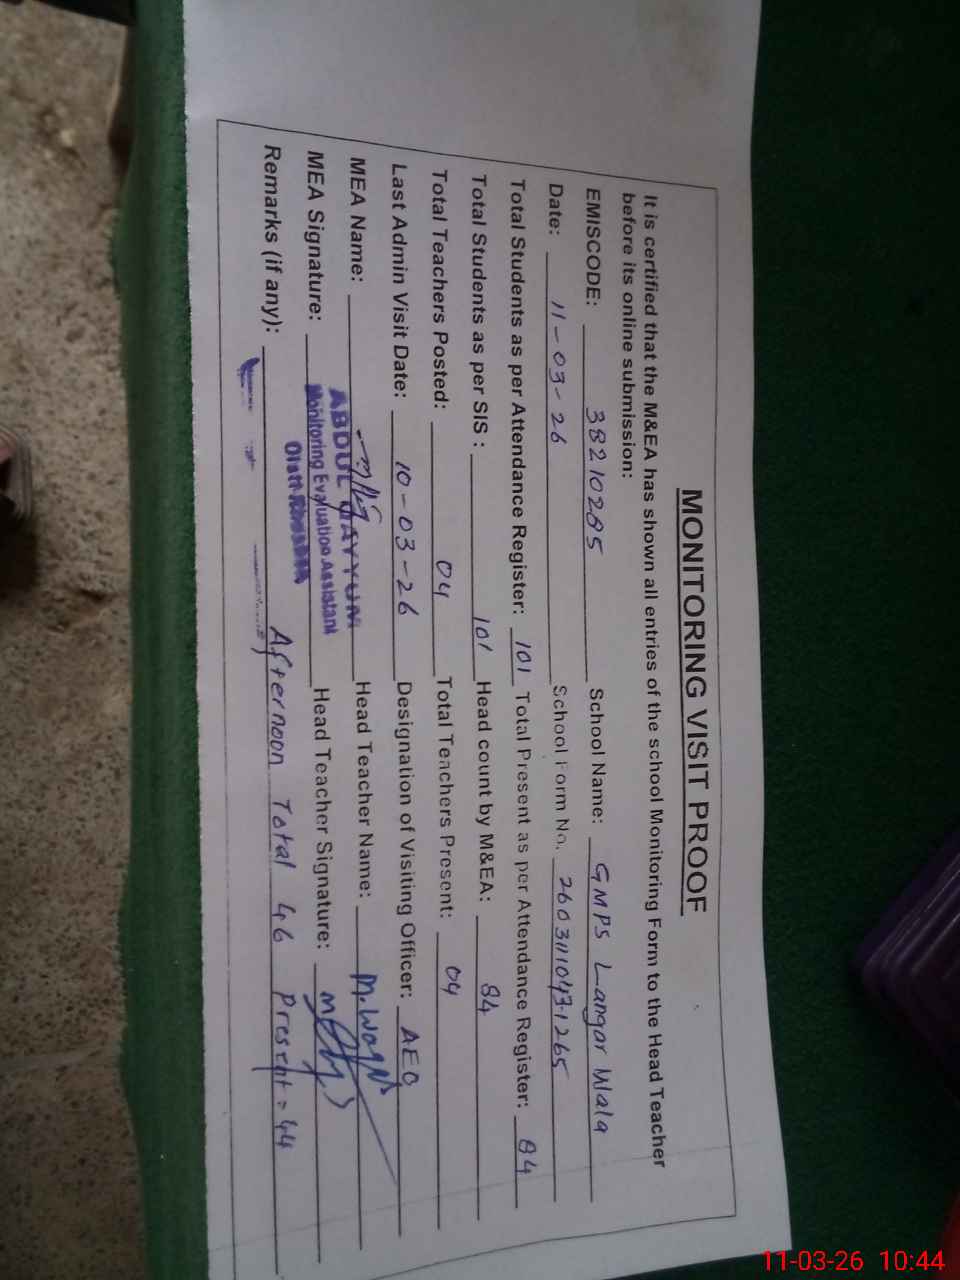 MONITORING VISIT PROOF
It is certified that the M&EA has shown all entries of the school Monitoring Form to the Head Teacher
before its online submission:
EMISCODE: 38210285 School Name: GMPS Langar Mlala
Date: 11-03-26 School Form No. 2603111043-1265
Total Students as per Attendance Register: 101 Total Present as per Attendance Register: 84
Total Students as per SIS : 101 Head count by M&EA: 84
Total Teachers Posted: 04 Total Teachers Present: 04
Last Admin Visit Date: 10-03-26 Designation of Visiting Officer: AEO
MEA Name: ABDUL QAYYUM Head Teacher Name:
MEA Signature: Monitoring Evaluation Assistant Head Teacher Signature:
Remarks (if any): Afternoon Total 46 Present = 44
11-03-26 10:44